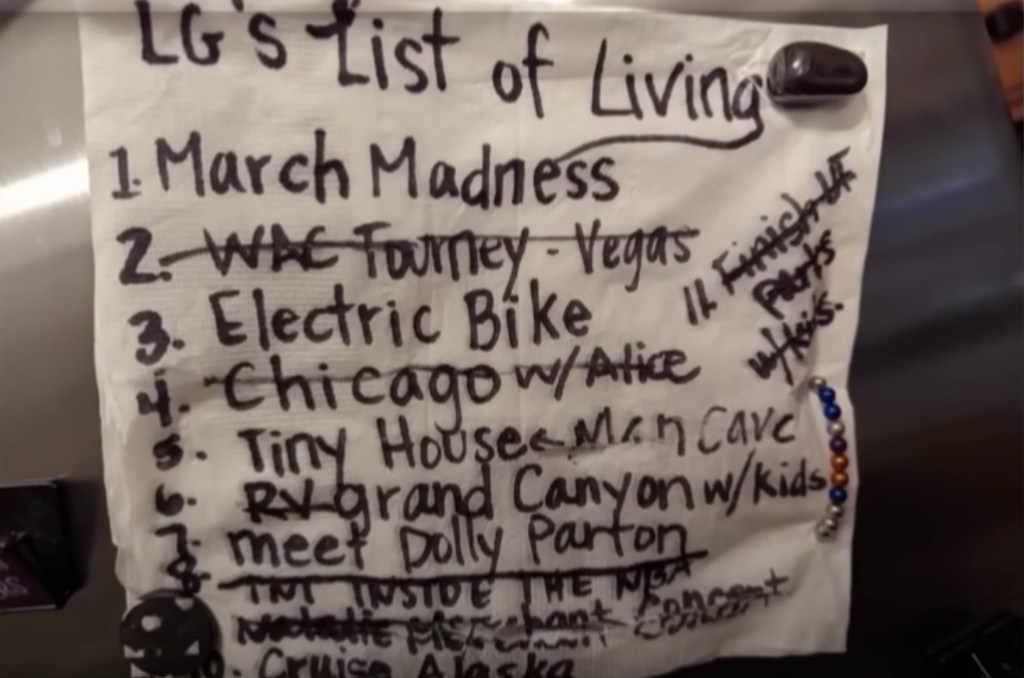 LG's List of Living
1. March Madness
2. WAC Tourney - Vegas
3. Electric Bike
4. Chicago w/ Alice
5. Tiny House Man Cave
6. RV grand Canyon w/ kids
7. meet Dolly Parton
8. TNT INSIDE THE NBA
Natalie Merchant Concert
10. Cruise Alaska
11. Finish
Parts
w/